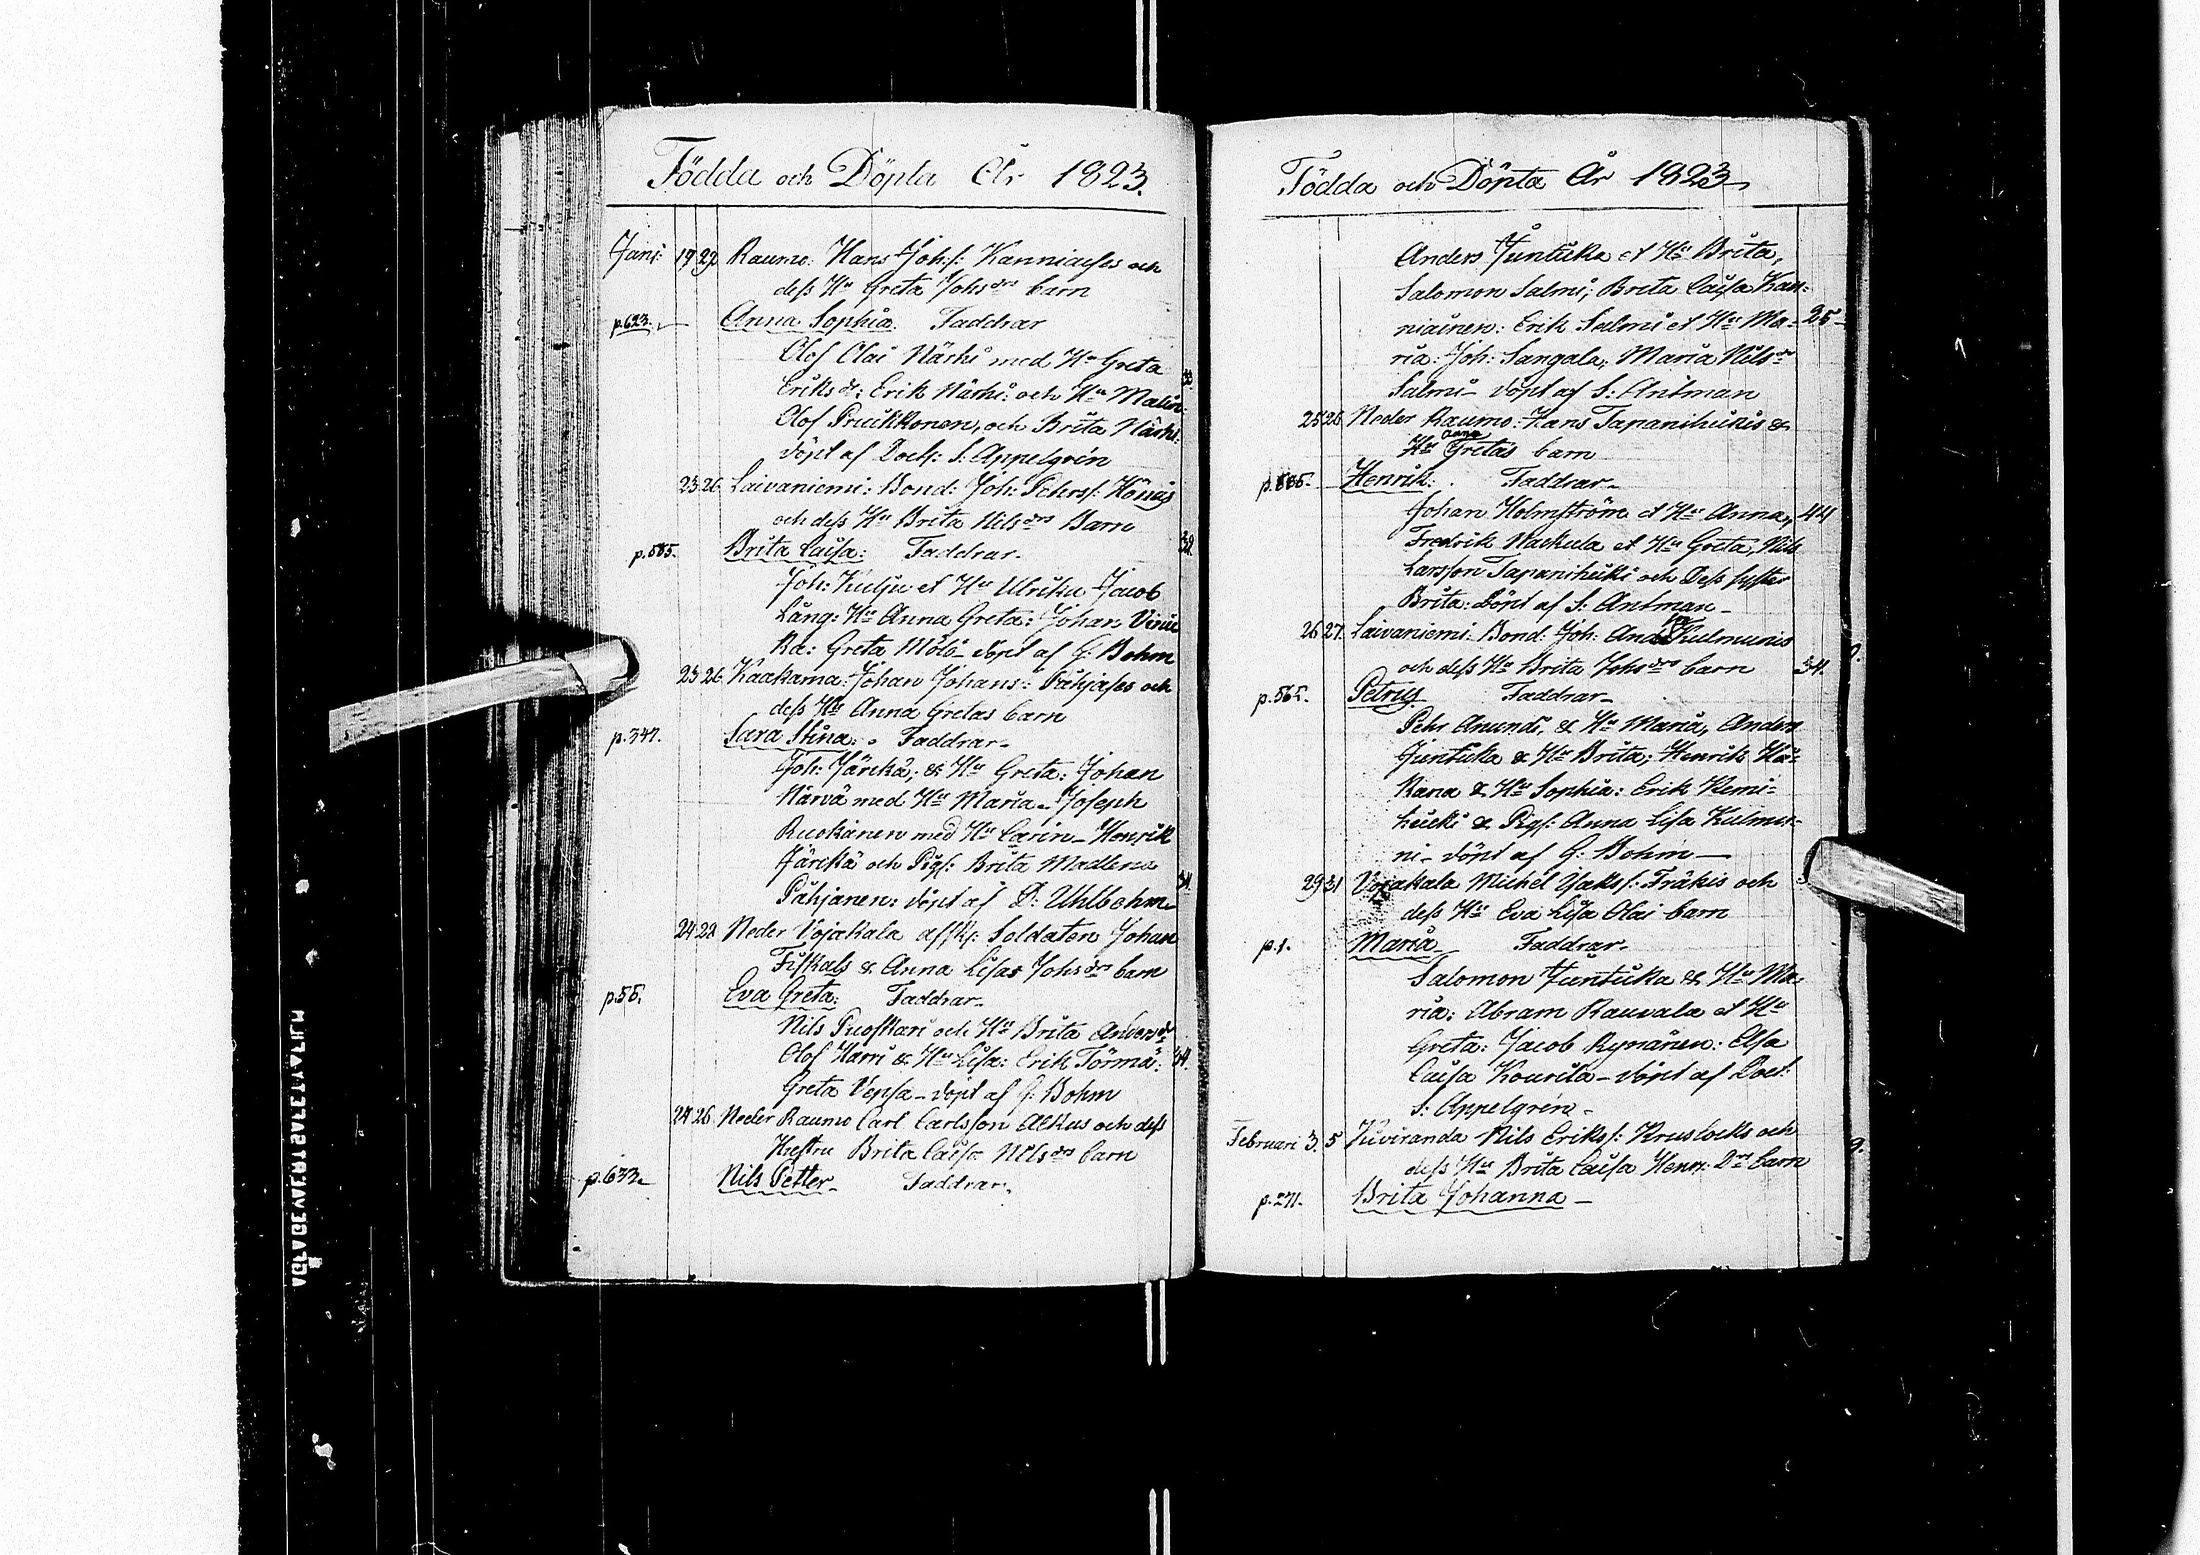 Födda och Döpta År 1823.
Janr: 19 29 Raumo: Hans Joh:s: Kanniaises och
dess Hu Greta Johsdrs barn
p.623. Anna Sophia. Faddrar
Olof Olai Närhi med Hu Greta
Eriks dr: Erik Närhi: och Hu Malin:
Olof Pruikkonen, och Brita Närhi:
döpt af Doct: S: Appelgrén
23 26 Laivaniemi: Bond: Joh: Pehrss:
och dess Hu Brita Nilsdrs Barn
p.585. Brita Caisa: Faddrar.
Joh: Kulju et Hu Ulrika Jacob
Lång: Hu Anna Greta: Johan
Greta döpt af G: Bohm
23 26 Kaakama: Johan Johans: Påhjases och
dess Hu Anna Gretas barn
p.347. Sara Stina: Faddrar.
Joh: Järikä; & Hu Greta: Johan
Närvä med Hu Maria. Joseph
Ruokanen med Hu Carin. Henrik
Järikä och Pigs: Brita Madlena
Påhjanen: döpt af D: Uhlbohm.
24 28 Neder Vojakala afsk: Soldaten Johan
Fiskals & Anna Lisas Johsdrs barn
p.55. Eva Greta: Faddrar.
Nils Puoskari och Hu Brita Andersdr
Olof Harri & Hu Lisa: Erik Törmä:
Greta Vepsa. döpt af G: Bohm
24 26 Neder Raumo Carl Carlsson Alkus och dess
Hustru Brita Caisa Nilsdrs barn
p.633. Nils Petter. Faddrar.
Födda och Döpta År 1823.
Anders Juntikka et Hu Brita,
Salomon Salmi; Brita Caisa Kan:
niainen: Erik Salmi et Hu Ma- 25
ria: Joh: Sangala, Maria Nilsdr
Salmi. döpt af S: Antman
25 26 Neder Raumo: Hans Tapanihuikis &
Hu Anna Gretas barn
p. Henrik: Faddrar.
Johan Holmström et Hu Anna, 44
Fredrik Waekula et Hu Greta, Nils
Larsson Tapanihuiki och Dess syster
Brita: Döpt af S: Antman.
26 27 Laivaniemi Bond: Joh: And Kulmunis
och dess Hu Brita Johsdrs barn 34.
p.565. Petrus Faddrar.
Pehr Anundi, & Hu Maria, Anders
Juntikka & Hu Brita; Henrik Hä:
kana & Hu Sophia: Erik Kemi:
huicki & Pigs: Anna Lisa Kulmu:
ni. döpt af G: Bohm
29 31 Vojakala Michel Isakss: Träkis och
dess Hu Eva Lisa Olai barn
p.1. Maria. Faddrar.
Salomon Juntikka & Hu Ma:
ria: Abram Rauvala et Hu
Greta: Jacob Rynänen: Elsa
Caisa Kourila. döpt af Doct:
S: Appelgrén.
Februari 3. 5 Kiviranda Nils Erikss: Kruslocks och
dess Hu Brita Caisa Henr: Drs barn
p.271. Brita Johanna
AGFA-GEVAERT A SAFETY FILM